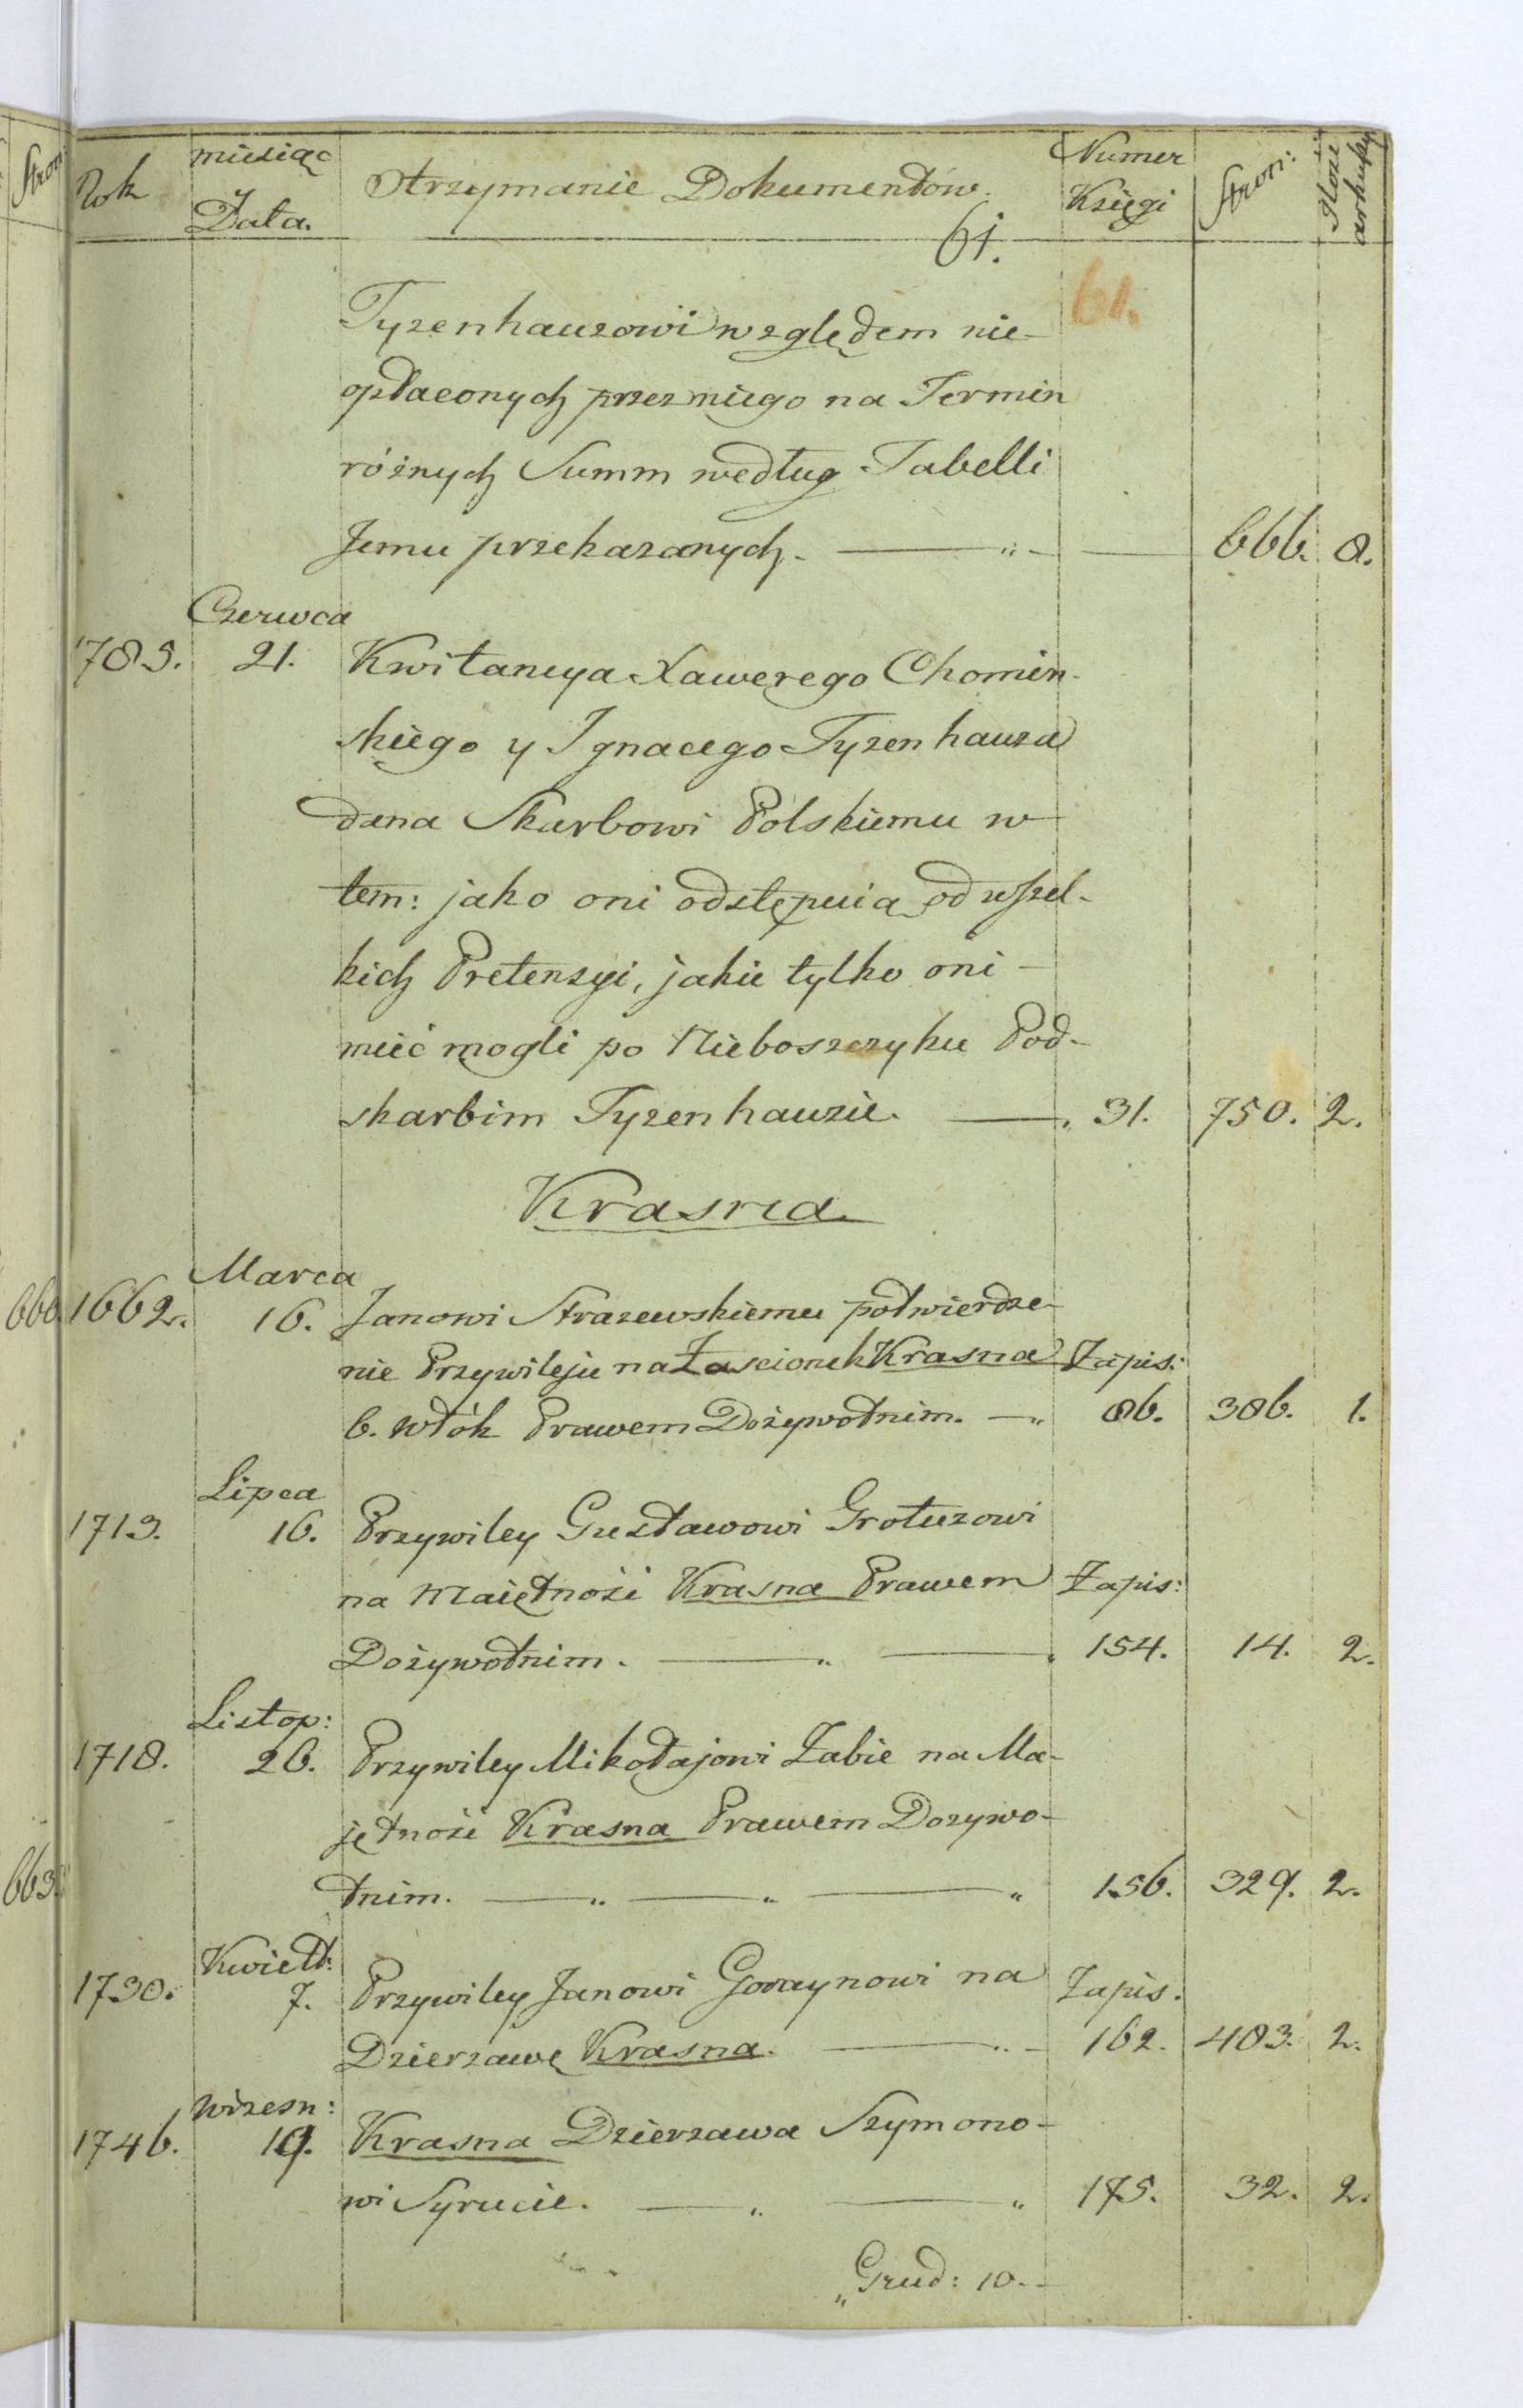 Stron:
Rok
miesiąc
Data.
Otrzymanie Dokumentów.
Numer
Księgi
Stron:
Ilość
arkuszy
61.
61.
Tyzenhauzowi względem nie-
opłaconych przez niego na Termin
różnych Summ według Tabelli
Jemu przekazanych. 666. 8.
Czerwca
1785. 21. Kwitancya Xawerego Chomin-
skiego y Ignacego Tyzenhauza
dana Skarbowi Polskiemu w
tem: jako oni odstępuią od wszel-
kich Pretensyi, jakie tylko oni
mieć mogli po Nieboszczyku Pod-
skarbim Tyzenhauzie. 31. 750. 2.
Krasna.
Marca
660. 1662. 16. Janowi Strazewskiemu potwierdze-
nie Przywileju na Zascionek Krasna Zapis:
6. włók Prawem Dożywotnim. 86. 386. 1.
Lipca
1713. 16. Przywiley Gustawowi Grotuzowi
na Maiętność Krasna Prawem Zapis:
Dożywotnim. 154. 14. 2.
Listop:
1718. 26. Przywiley Mikołajowi Zabie na Ma-
jętność Krasna Prawem Dozywo-
663. tnim. 156. 329. 2.
Kwiet:
1730. 7. Przywiley Janowi Goraynowi na Zapis.
Dzierzawę Krasna. 162. 483. 2.
Wrzesn:
1746. 19. Krasna Dzierzawa Szymono-
wi Syrucie. 175. 32. 2.
Grud: 10.